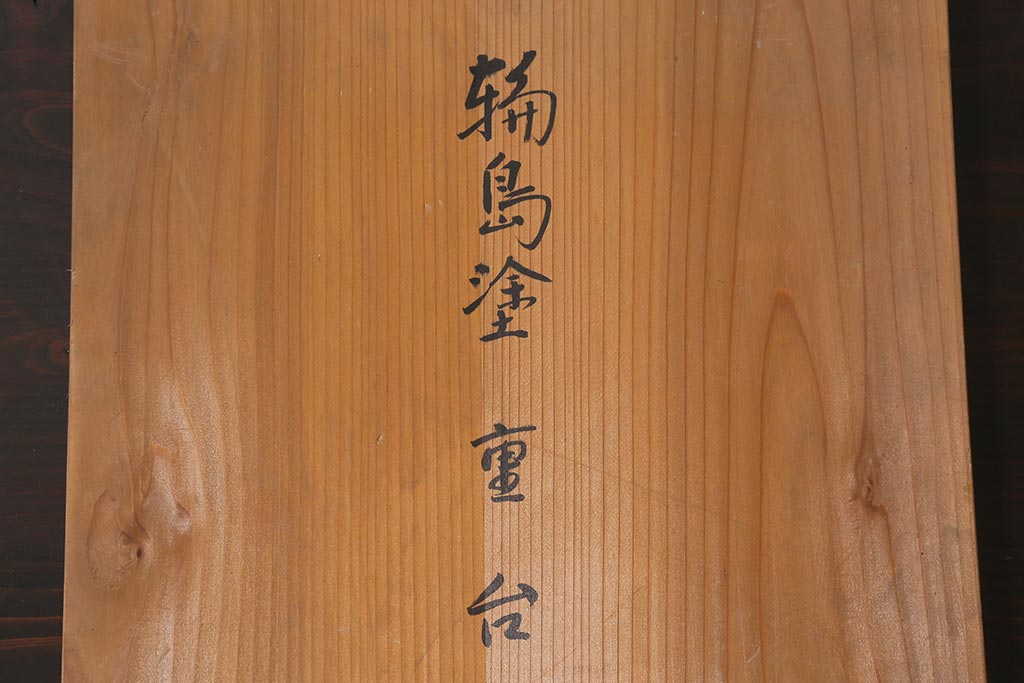 輪島塗 重台